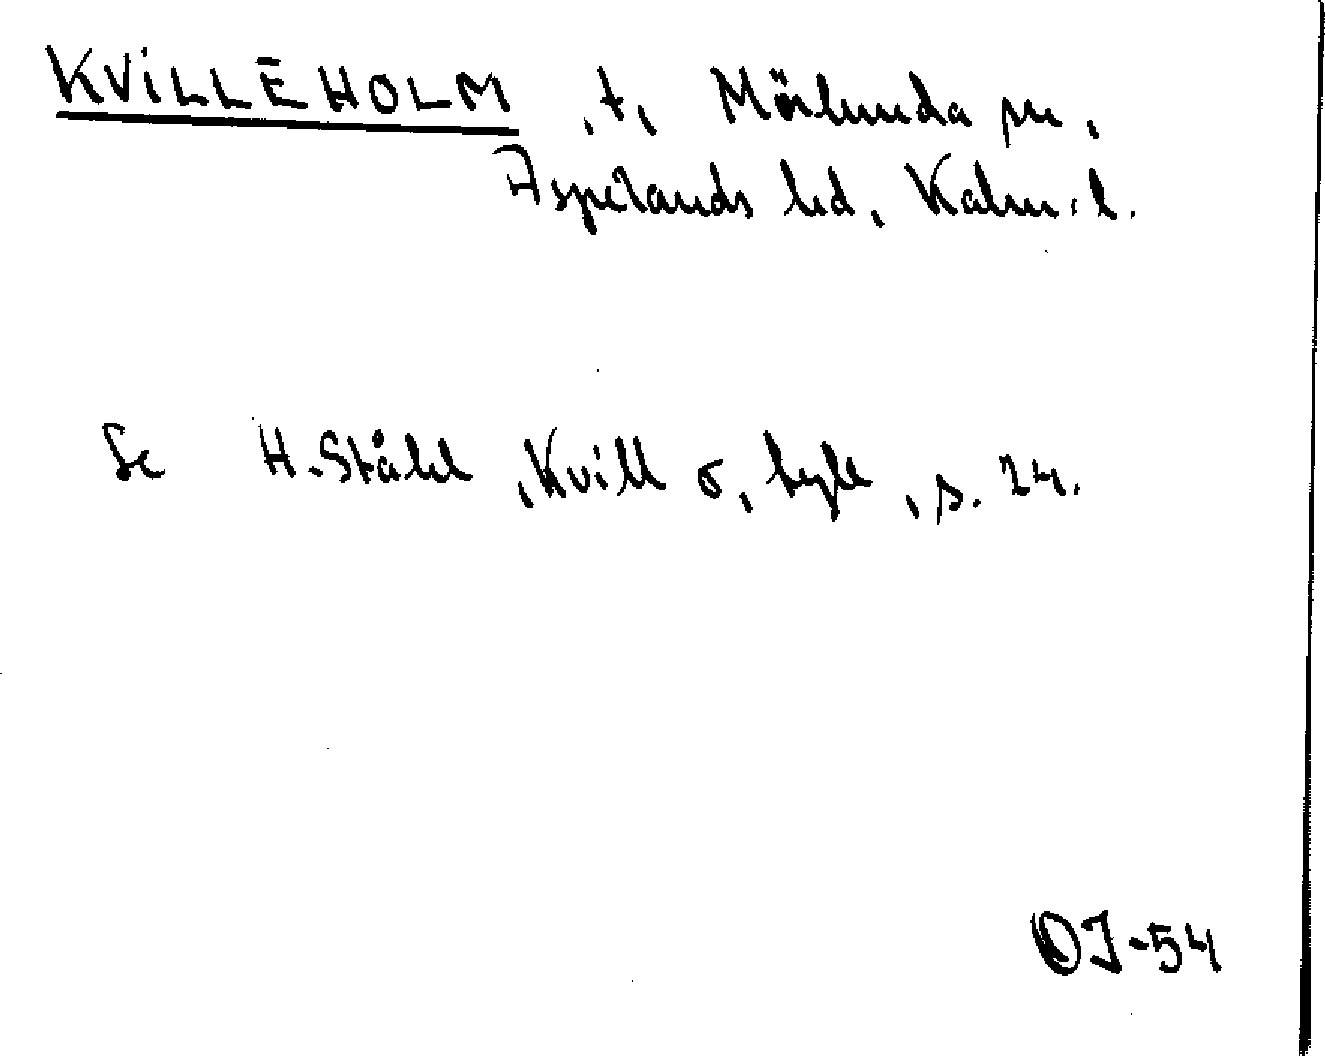 KVILLEHOLM, t, Mörlunda sn,
Aspelands hd, Kalm. l.
Se H. Ståhl, Kvill o, tyle, s. 24.
OJ-54